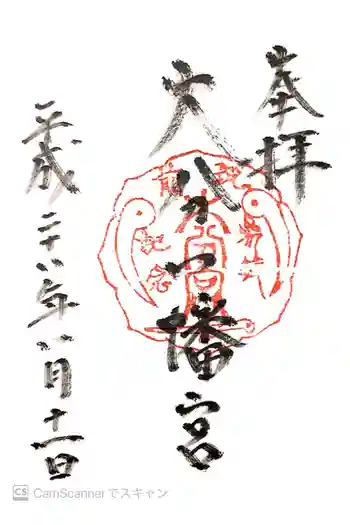 奉拝
大八幡宮
平成二十八年八月十一日
記念
CS CamScanner でスキャン